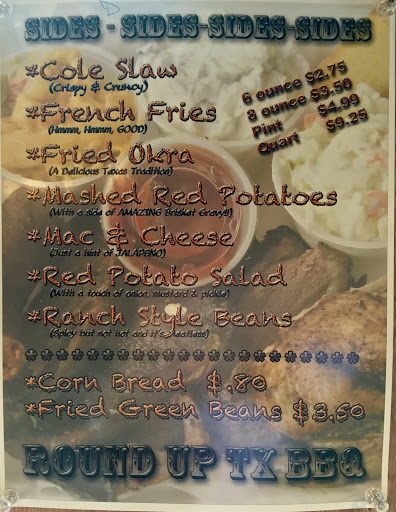 SIDES - SIDES-SIDES-SIDES
*Cole Slaw
(Crispy & Cruncy)
6 ounce $2.75
8 ounce $3.50
Pint $4.99
Quart $9.25
*French Fries
(Hmmm, Hmmm, GOOD)
*Fried Okra
(A Delicious Taxes Tradition)
*Mashed Red Potatoes
(With a side of AMAZING Brisket Gravy!!)
*Mac & Cheese
(Just a hint of JALAPENO)
*Red Potato Salad
(With a touch of onion, mustard & pickle)
*Ranch Style Beans
(Spicy but not hot and it's meatless)
*Corn Bread $.80
*Fried Green Beans $3.50
ROUND UP TX BBQ